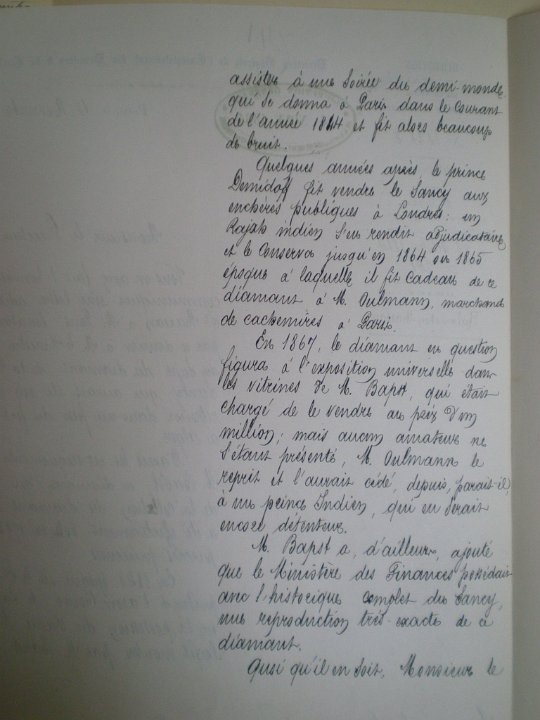 assister à une Soirée du demi-monde
qui se donna à Paris dans le Courant
de l'année 1844 et fit alors beaucoup
de bruit.
Quelques années après, le prince
Demidoff fit vendre le Sancy aux
enchères publiques à Londres: un
Rajah indien s'en rendit adjudicataire
et le Conserva jusqu'en 1864 ou 1865
époque à laquelle il fit Cadeau de ce
diamant à M. Oulmann, marchand
de cachemires à Paris.
En 1867, le diamant en question
figura à l'exposition universelle dans
les vitrines de M. Bapst, qui était
chargé de le vendre au prix d'un
million; mais aucun amateur ne
s'étant présenté, M. Oulmann le
reprit et l'aurait cédé, depuis, parait-il
à un prince Indien, qui en serait
encore détenteur.
M. Bapst a, d'ailleurs, ajouté
que le Ministère des Finances possédait
avec l'historique complet du Sancy,
une reproduction très exacte de ce
diamant.
Quoi qu'il en soit, Monsieur le